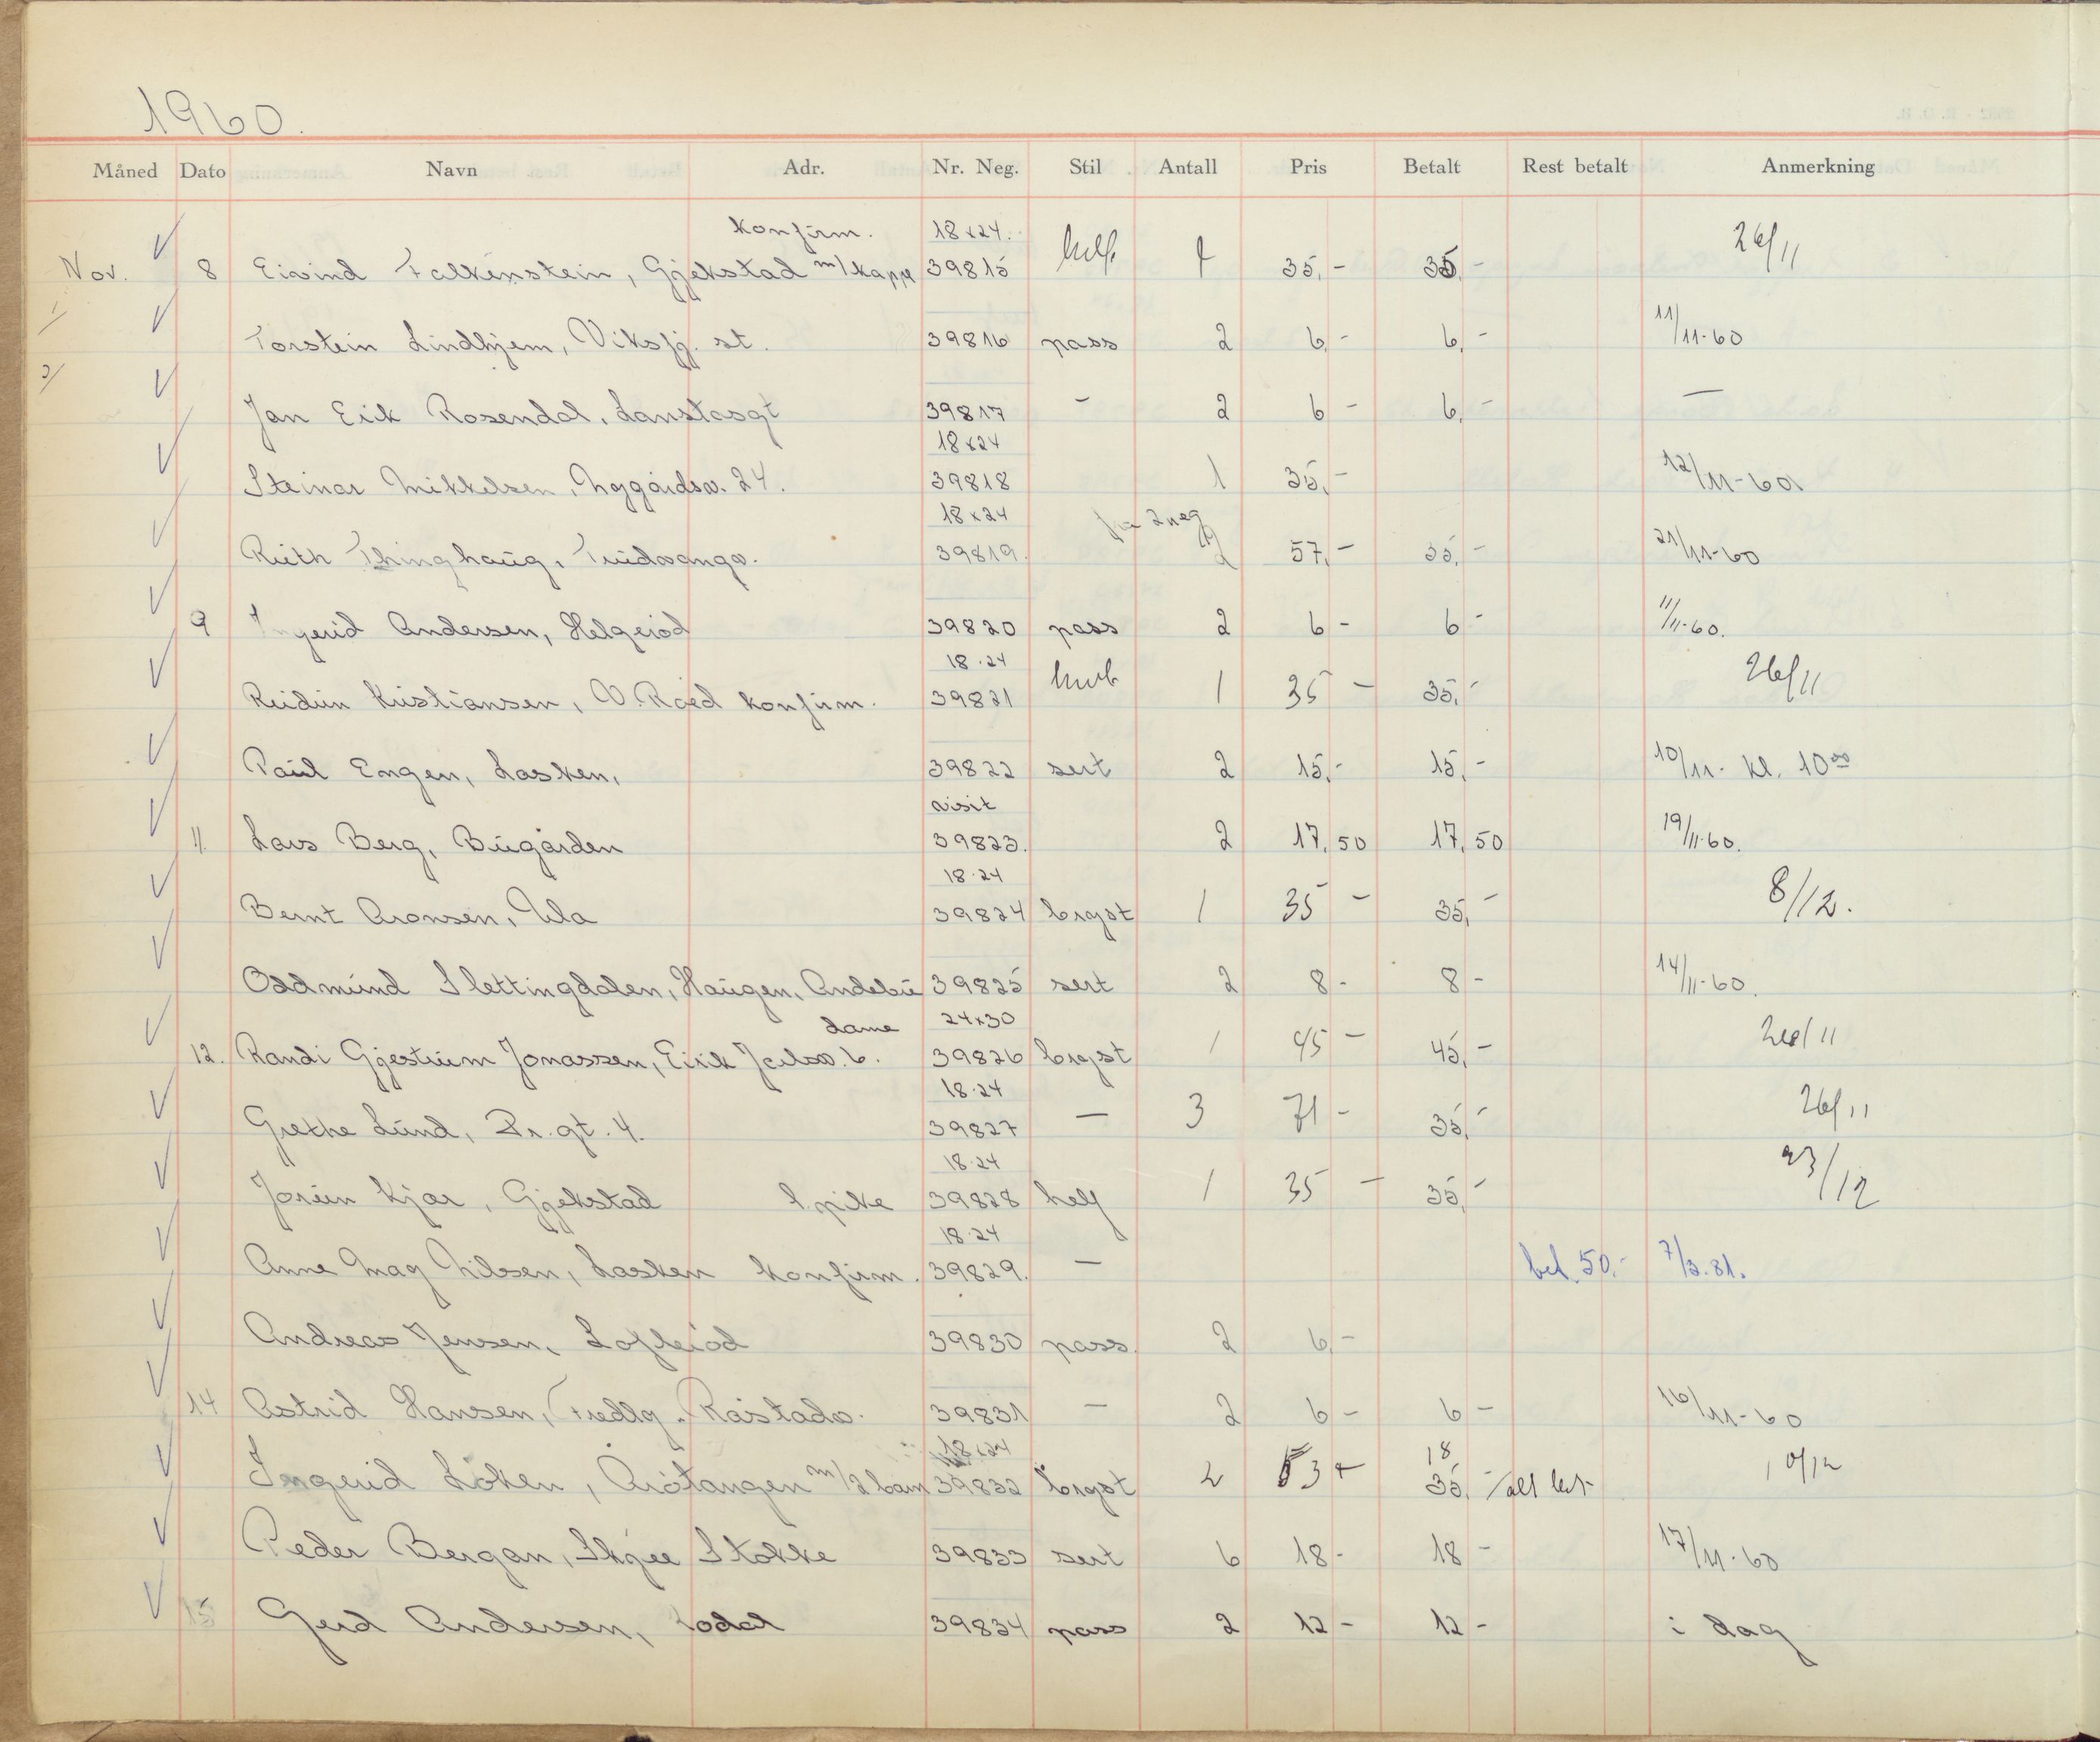 1960.
Måned Dato Navn Adr. Nr. Neg. Stil Antall Pris Betalt Rest betalt Anmerkning
Konfirm. 18x24.
Nov. 8 Eivind Falkenstein, Gjekstad m/kappe 39815 35,- 35,- 26/11
Torstein Lindhjem, Viksfj. st. 39816 pass 2 6,- 6,- 11/11-60
Jan Erik Rosendal, 39817 - 2 6 - 6,- —
18x24
Steinar Mikkelsen, Nygårdsv. 24. 39818 1 35,- 12/11-60.
18x24 2 neg
Ruth Thinghaug, Tuidvangv. 39819. 2 57,- 35,- 21/11-60
9 Ingerid Andersen, Helgerød 39820 pass 2 6 - 6 - 11/11-60.
18·24
Reidun Kristiansen, V. Råed konfirm. 39821 1 35 - 35,- 26/11
Paul Engen, Lasken, 39822 sert 2 15,- 15,- 10/11. kl. 10⁰⁰
visit
11 Lars Berg, Bugården 39823. 2 17,50 17,50 19/11-60.
18·24
Bernt Aronsen, Ula 39824 bryst 1 35 - 35,- 8/12.
Oddmund Slettingdalen, Haugen, Andebu 39825 sert 2 8 - 8 - 14/11-60.
dame 24x30
12. Randi Gjestrum Jonassen, Eirik Jarlsv. 6. 39826 bryst 1 45 - 45,- 26/11
18·24
Grethe Lund, Dr. gt. 4. 39827 — 3 71 - 35,- 26/11
18·24
Jorun Kjær, Gjekstad 39828 hel 1 35 - 35,- 23/12
18·24
Anne Mag Nilsen, Lasken konfirm. 39829. — bet. 50.- 7/3.81.
Andreas Jensen, 39830 pass 2 6,-
14 Astrid Hansen, Fredly. Råstadv. 39831 — 2 6 - 6 - 16/11-60
18x24 18
Ingerid Løken, Årøtangen m/2 barn 39832 bryst 2 53 35,- 10/12
Peder Bergan, Stokke 39833 sert 6 18 - 18 - 17/11-60
15 Gerd Andersen, 39834 pass 2 12 - 12 - i dag